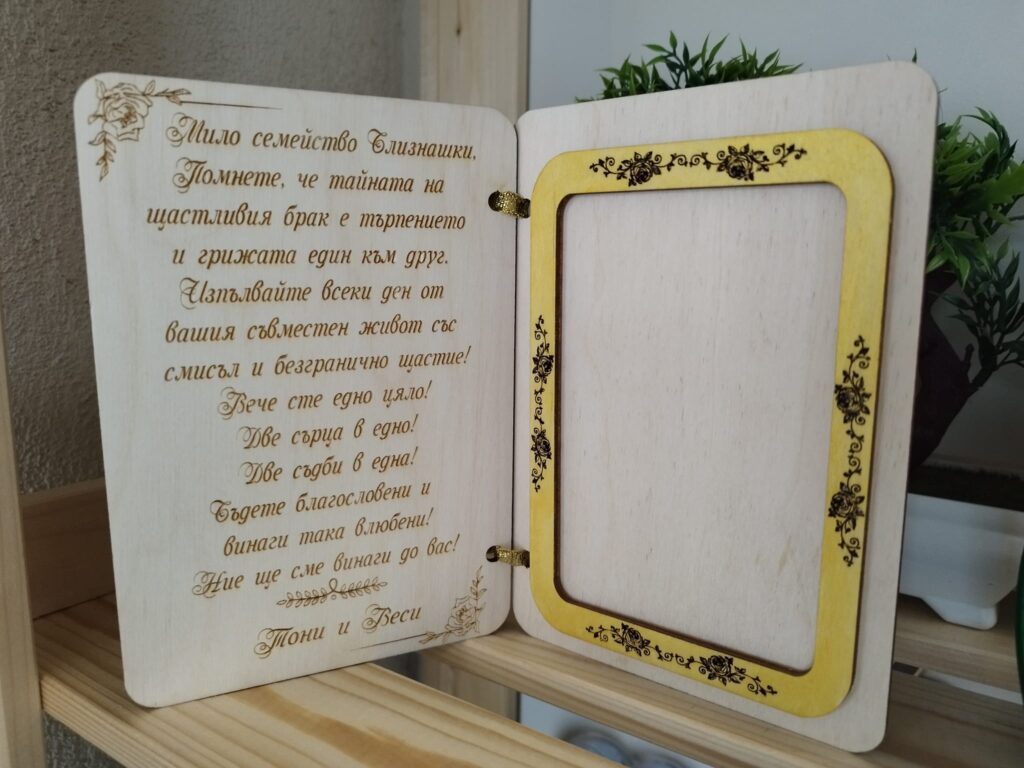 Мило семейство Близнашки,
Помнете, че тайната на
щастливия брак е търпението
и грижата един към друг.
Изпълвайте всеки ден от
вашия съвместен живот със
смисъл и безгранично щастие!
Вече сте едно цяло!
Две сърца в едно!
Две съдби в една!
Бъдете благословени и
винаги така влюбени!
Ние ще сме винаги до вас!
Тони и Веси